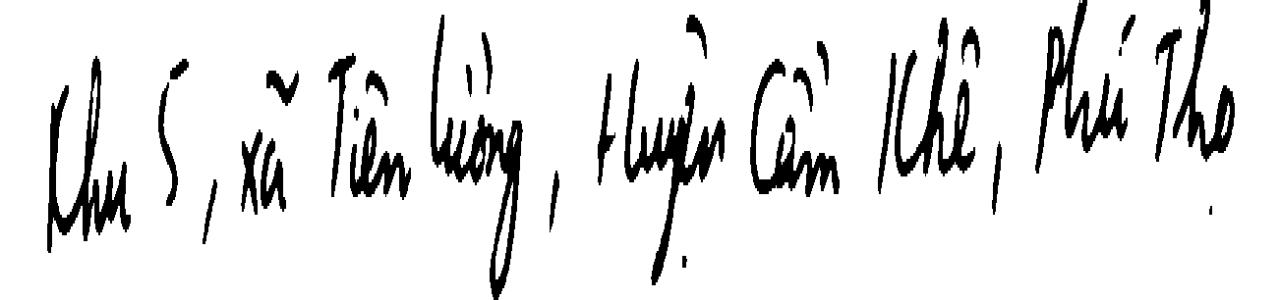 Khu 5, xã Tiên Lường, Huyện Cầm Khê, Phú Thọ